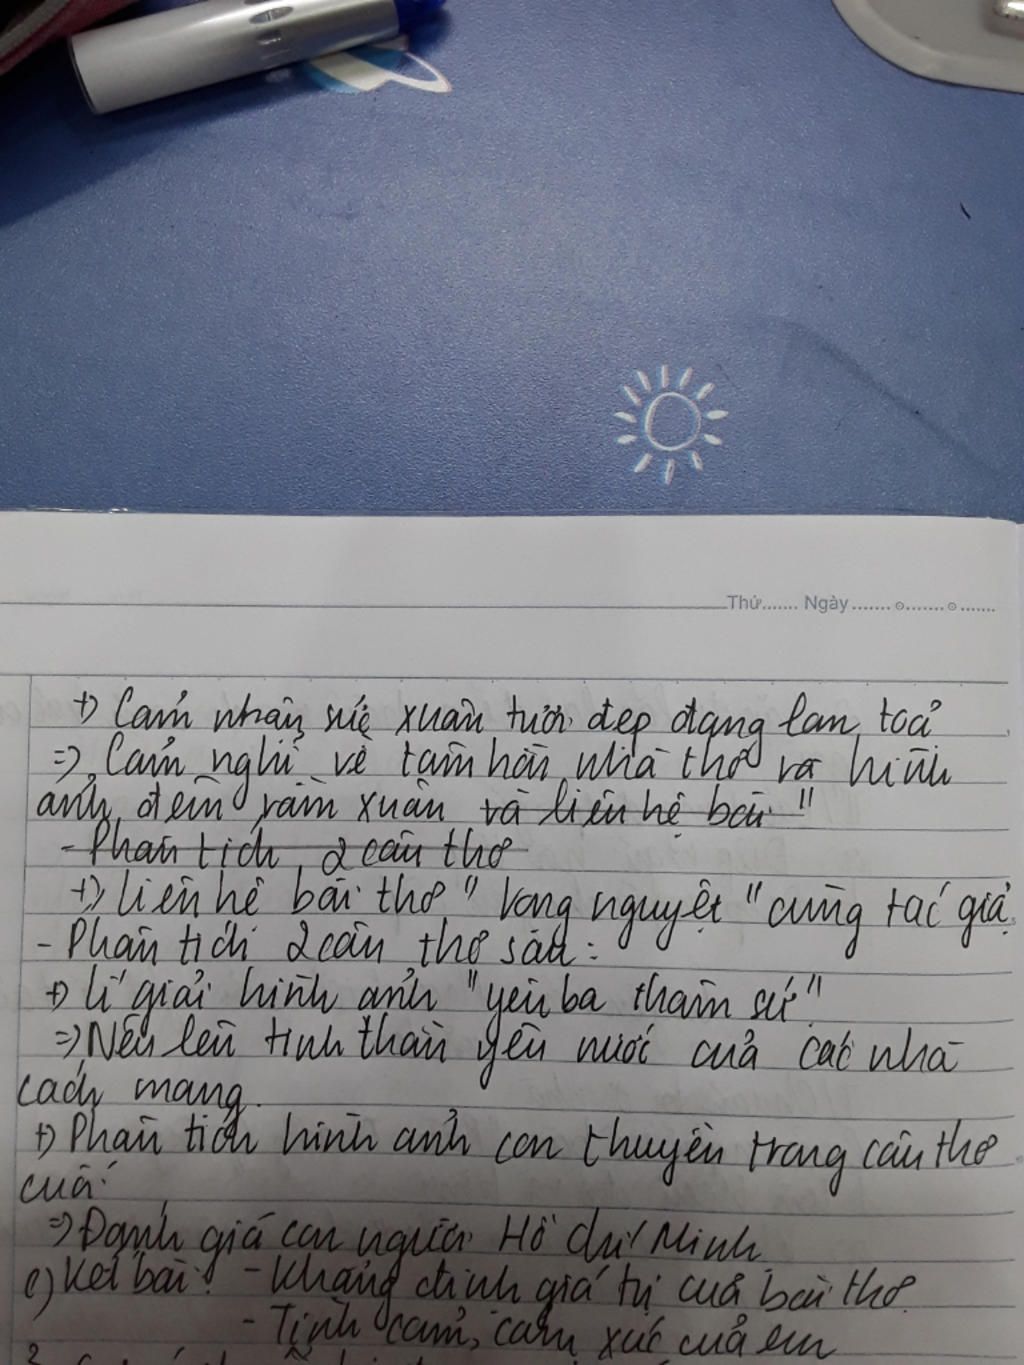 Thứ....... Ngày .......⊙.......⊙.......
+) Cảm nhận sức xuân tươi đẹp đang lan toả
=> Cảm nghĩ về tâm hồn nhà thơ và hình
ảnh đêm rằm xuân và liên hệ bài "
- Phân tích 2 câu thơ
+) Liên hệ bài thơ "Vọng nguyệt" cùng tác giả.
- Phân tích 2 câu thơ sau:
+) Lí giải hình ảnh "yên ba thâm sứ"
=> Nêu lên tinh thần yêu nước của các nhà
cách mạng.
+) Phân tích hình ảnh con thuyền trong câu thơ
cuối.
=> Đánh giá con người Hồ Chí Minh
c) Kết bài: - Khẳng định giá trị của bài thơ.
- Tình cảm, cảm xúc của em